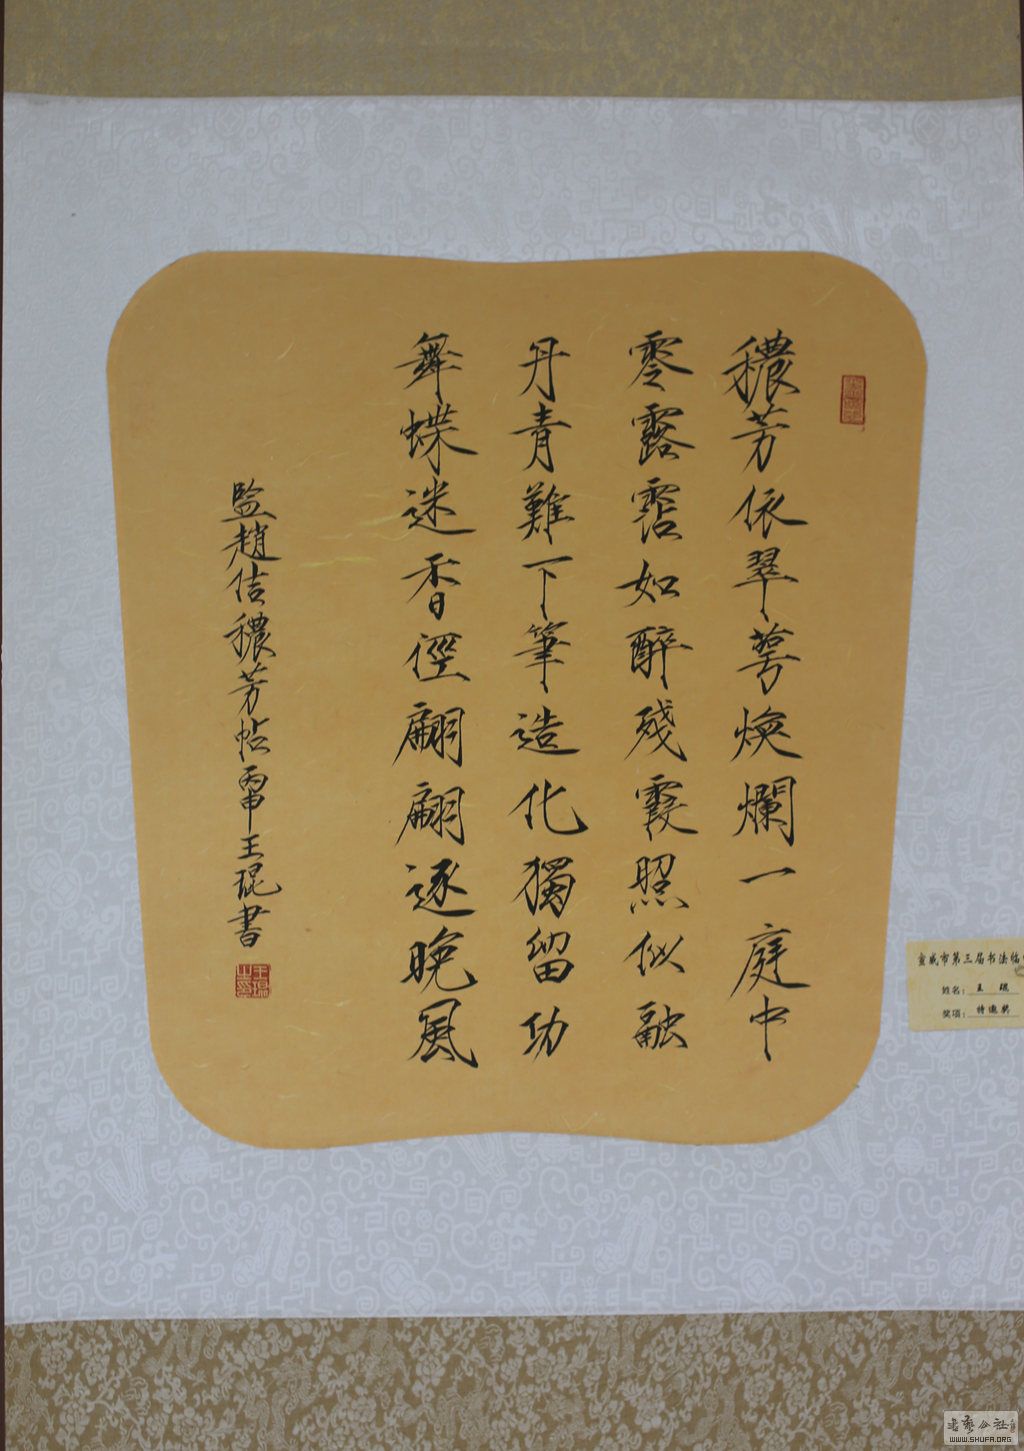 穠芳依翠萼煥爛一庭中
零露霑如醉殘霞照似融
丹青難下筆造化獨留功
舞蝶迷香徑翩翩逐晚風
監趙佶穠芳帖丙申王琨書
王琨之印
宣威市第三届书法临
姓名：王琨
奖项：特邀奖
書藝公社
WWW.SHUFA.ORG